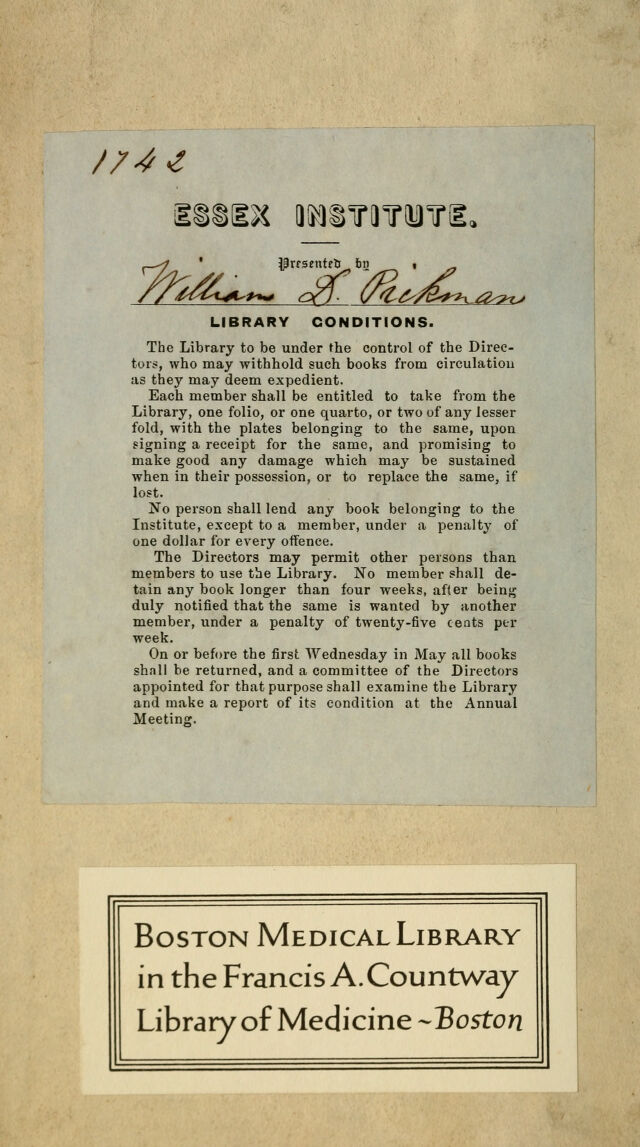 1742
ESSEX INSTITUTE.
Presented by
William D. Pickman
LIBRARY CONDITIONS.
The Library to be under the control of the Direc-
tors, who may withhold such books from circulation
as they may deem expedient.
Each member shall be entitled to take from the
Library, one folio, or one quarto, or two of any lesser
fold, with the plates belonging to the same, upon
signing a receipt for the same, and promising to
make good any damage which may be sustained
when in their possession, or to replace the same, if
lost.
No person shall lend any book belonging to the
Institute, except to a member, under a penalty of
one dollar for every offence.
The Directors may permit other persons than
members to use the Library. No member shall de-
tain any book longer than four weeks, after being
duly notified that the same is wanted by another
member, under a penalty of twenty-five cents per
week.
On or before the first Wednesday in May all books
shall be returned, and a committee of the Directors
appointed for that purpose shall examine the Library
and make a report of its condition at the Annual
Meeting.
BOSTON MEDICAL LIBRARY
in the Francis A. Countway
Library of Medicine ~ Boston